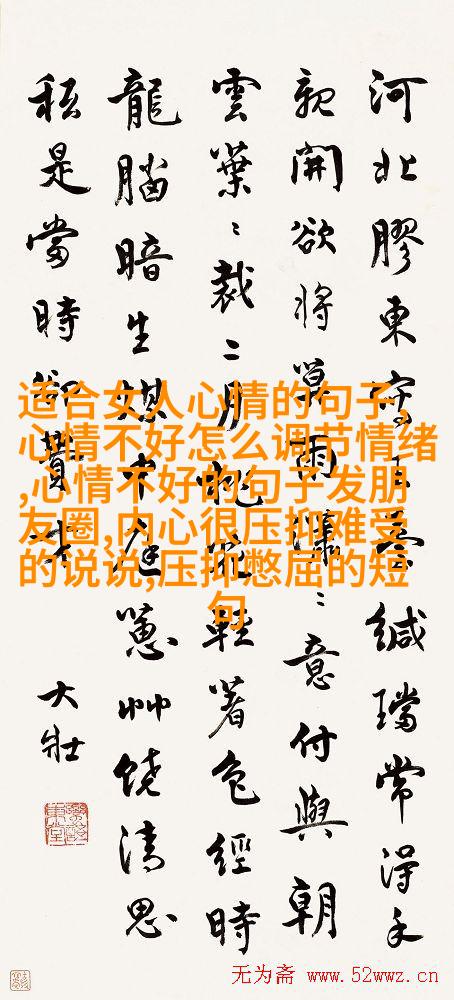 河北膠東緘璫常得手
親開欲將雨瀟〻意付與朝
雲葉〻裁二月輕著色經時
龍腦暗生媒中庭蕙艸饒清思
秖是當時
大壯
适合女人心情的句子,
心情不好怎么调节情绪
,心情不好的句子发朋
友圈,内心很压抑难受
的说说,压抑憋屈的短
句
无为斋 www.52wwz.cn